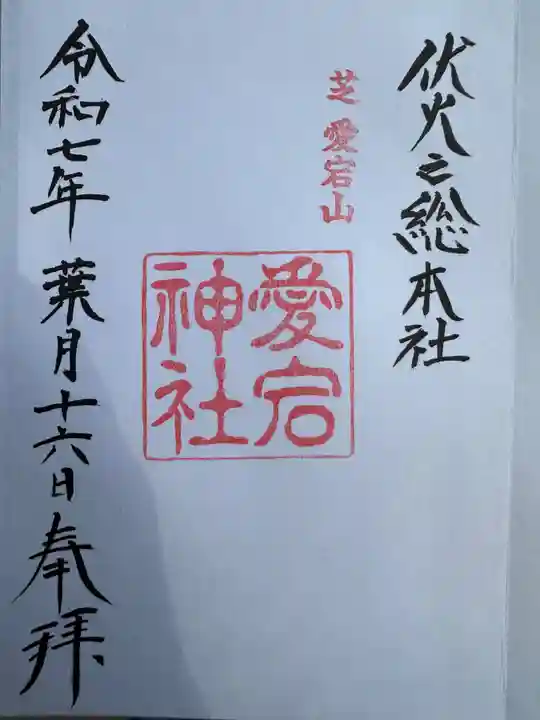 伏火之総本社
芝 愛宕山
愛宕
神社
令和七年 葉月十六日 奉拝